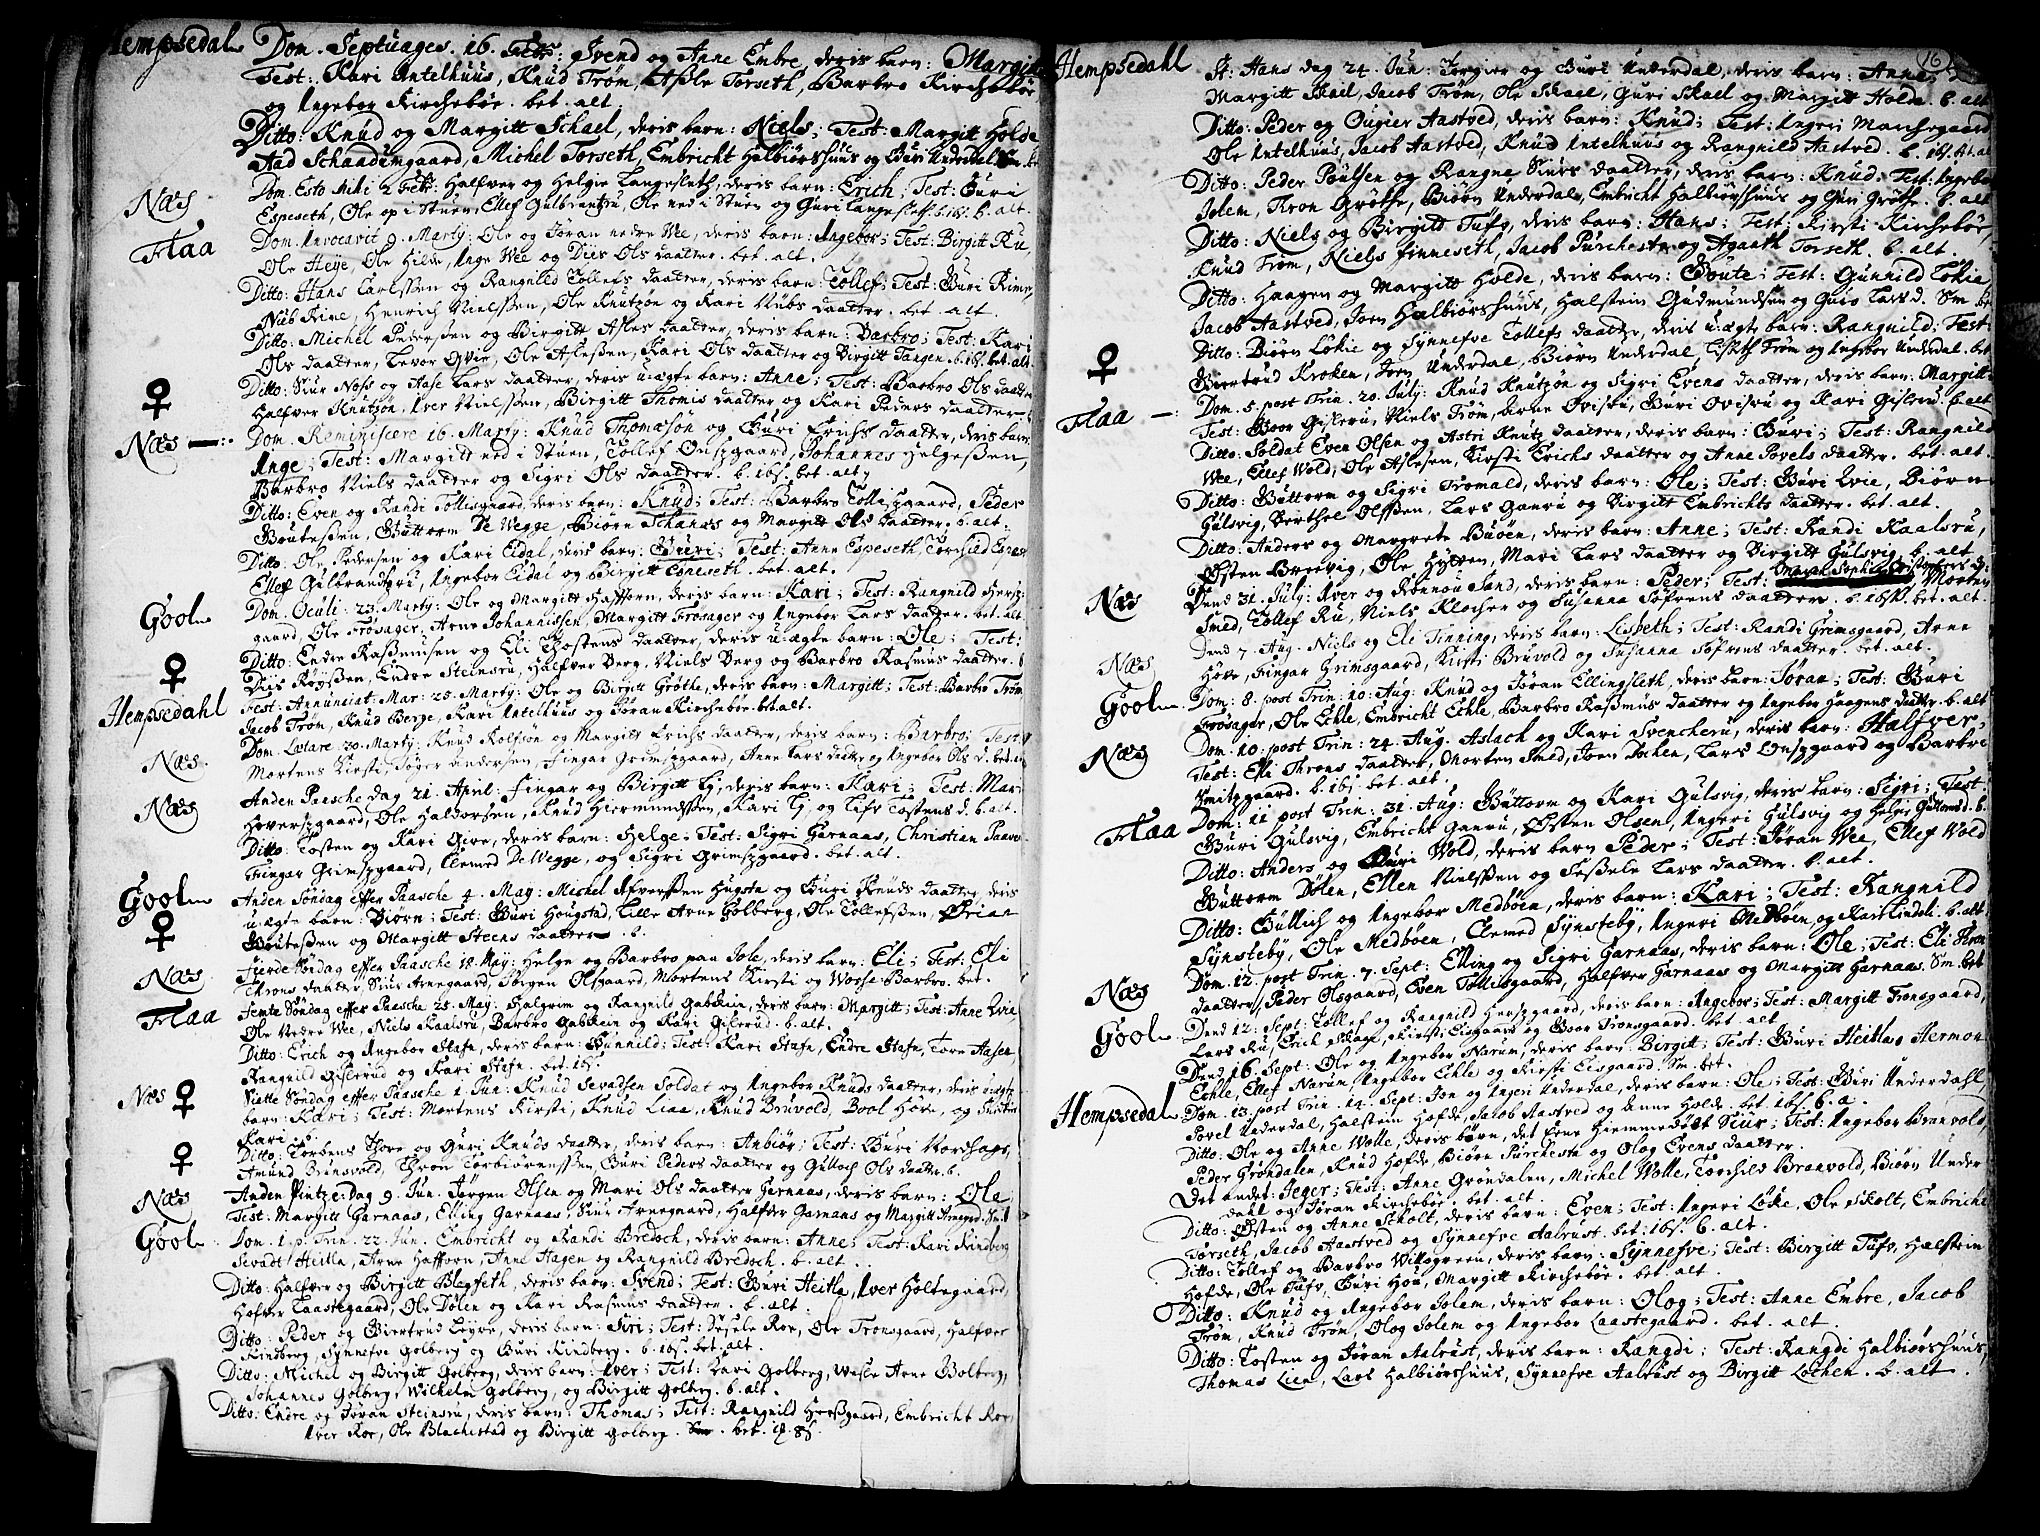 Hempsedal Dom. Septuages. 16. Febr: Svend og Anne Embre, deris barn: Margit
Test: Kari Untelhuus, Knud Trøm, Asle Torseth, Barbro Kirchebøe
og Ingebor Kirchebøe. bet. alt.
Ditto: Knud og Margitt Schael, deris barn: Niels; Test: Margit Holde
Aad Schaademgaard, Michel Torseth, Embricht Halbiørshuus og Guri Underdal
Næs Dom. Esto mihi 2 Febr: Halfver og Helgie Langesleth, deris barn: Erich; Test: Guri
Espeseth, Ole op i Stuen, Ellef Gulbrandsru, Ole ned i Stuen og Guri Langesleth. b. alt.
Flaa Dom. Invocavit 9. Martij: Ole og Jøran nedre Wee, deris barn: Ingebor; Test: Birgitt Ru,
Ole Heije, Ole Hilde, Inge Wee og Diis Ols daatter. bet. alt.
Ditto: Hans Carlssen og Rangnild Tollefs daatter, deris barn: Tollef; Test: Guri Rime,
Nub Rine, Henrich Nielssen, Ole Knutzøn og Kari Nubs daatter. bet. alt.
Ditto: Michel Pederssen og Birgitt Asles daatter, deris barn: Barbro; Test: Kari
Ols daatter, Levor Qvie, Ole Aslessen, Kari Ols daatter og Birgitt Tangen. bet. alt
♀ Ditto: Siur Noss og Aase Lars daatter, deris u:ægte barn: Anne; Test: Barbro Ols daatter
Halfver Knutzøn, Iver Nielssen, Birgitt Thomis daatter og Kari Peders daatter
Næs Dom. Reminiscere 16. Martij: Knud Thomasøn og Guri Erichs daatter, deris barn
Inge; Test: Margitt ned i Stuen, Tollef Onsgaard, Johannes Helgessen,
Barbro Niels daatter og Sigri Ols daatter. b. 16s. bet. alt.
Ditto: Even og Randi Tollisgaard, deris barn: Knud; Test: Barbro Tollisgaard, Peder
Goutessen, Guttorm De Wegge, Biørn Schans og Margitt Ols daatter. b. alt.
Ditto: Ole Pedersen og Kari Eidal, deris barn: Guri; Test: Anne Espeseth, Torchild Espeset
Ellef Gulbrandsru, Ingebor Eidal og Birgitt Espeseth. bet. alt.
Gool Dom. Oculi: 23. Martij: Ole og Margitt Hafforn, deris barn: Kari; Test: Rangnild Hersz
gaard, Ole Frøsager, Arne Johannissen, Margitt Frøsager og Ingebor Lars daatter. bet. alt
♀ Ditto: Endre Rassmusen og Eli Tostens daatter, deris u:ægte barn: Ole; Test:
Diis Røyssen, Endre Steinsru, Halfver Berg, Niels Berg og Barbro Rasmus daatter. b
Hempsedahl Fest: Annunciat: Mar: 25. Martij: Ole og Birgitt Grøthe, deris barn: Margitt; Test: Barbro Trøm
Jacob Trøm, Knud Berge, Kari Untelhuus og Jøran Kirchebøe bet. alt.
Næs Dom. Lætare 30. Martij: Knud Rolfsøn og Margitt Erichs daatter, deris barn: Barbro; Test:
Mortens Kirsti, Tøger Andersen, Fingar Grimszgaard, Anne Lars datter og Ingebor Ols d. bet.
Næs Anden Paasche dag 21. April: Fingar og Birgitt Lj, deris barn: Kari; Test: Mari
Hoverszgaard, Ole Haldorsen, Knud Hiermundssen, Kari Lj og Lifv Tostens d. b. alt.
Ditto: Tosten og Kari Give, deris barn: Helge; Test: Sigri Garnaas, Christian Paave
Fringar Grimszgaard, Clemed De Wegge, og Sigri Grimszgaard. bet. alt.
Gool Anden Søndag effter Paasche 4. May: Michel Afverssen Hugsta og Guri Knuds daatter, deris
♀ u:ægte barn: Biørn; Test: Guri Hougstad, Lille Arne Golberg, Ole Tollefssen, Brian
Goutessen og Margitt Steens daatter. b.
Næs Fierde Søndag effter Paasche 18. May: Helge og Barbro paa Jole, deris barn: Eli; Test: Eli
Throns daatter, Siur Arnegaard, Jørgen Olsgaard, Mortens Kirsti og Woxse Barbro. bet.
Flaa Femte Søndag effter Paasche 25. May: Halgrim og Rangnild Gabskein, deris barn: Margitt; Test: Anne Qvie,
Ole Nedre Wee, Niels Kaalsru, Barbro Gabskein og Kari Gislerud. b. alt.
Ditto: Erich og Ingebor Stafn, deris barn: Gunnild; Test: Kari Stafn, Endre Stafn, Tore Aasen
Rangnild Gislerud og Kari Stafn. bet. 16s.
Næs ♀ Siette Søndag effter Paasche 1. Jun: Knud Sevadsen Soldat og Ingebor Knuds daatter, deris u:ægte
barn: Kari; Test: Mortens Kirsti, Knud Liaa, Knud Bruvold, Bool Høve, og
Kari. b.
♀ Ditto: Torbens Thore og Guri Knuds daatter, deris barn: Anbiør; Test: Guri Nordhags,
Amund Brunsvold, Thron Torbiørenssen, Guri Peders daatter og Gulloch Ols daatter. b.
Næs Anden Pintze:Dag 9. Jun. Jørgen Olsen og Mari Ols daatter Garnaas, deris barn: Ole
Test: Margitt Garnaas, Elling Garnaas, Siur Arnegaard, Halfver Garnaas og Margitt Arnegrd.
Gool Dom. 1. p. Trin. 22. Jun. Embricht og Randi Bredoch, deris barn: Anne; Test: Kari Rindberg
Sevadt Heitla, Arne Hafforn, Anne Hagen og Rangnild Bredoch. b. alt.
Ditto: Halfver og Birgitt Blegseth, deris barn: Svend; Test: Guri Heitla, Iver Holtegaard,
Hofver Laastegaard, Ole Dølen og Kari Rasmus daatter. b. alt.
Ditto: Peder og Giertrud Leyre, deris barn: Siri; Test: Desele Roe, Ole Tronsgaard, Halfver
Rindberg, Synnefve Golberg og Guri Rindberg. b. 16s. bet. alt.
Ditto: Michel og Birgitt Golberg, deris barn: Iver; Test: Kari Golberg, Wesle Arne Golberg,
Johannes Golberg, Wilhelm Golberg, og Birgitt Golberg. b. alt.
Ditto: Endre og Jøran Steinsru, deris barn: Thomas; Test: Rangnild Hersszgaard, Embricht Roe,
Iver Roe, Ole Blachestad og Birgitt Golberg. bet.
16
Hempsedahl St. Hans dag 24. Jun. Torgier og Guri Underdal, deris barn: Anne;
Margitt Skael, Jacob Trøm, Ole Skael, Guri Skael og Margitt Holde. b. alt
Ditto: Peder og Ougier Aastved, deris barn: Knud; Test: Ingeri Manszgaard
Ole Untelhuus, Jacob Aastved, Knud Untelhuus og Rangnild Aastved. b. 16s. bt. al
Ditto: Peder Poulsen og Rangne Siurs daatter, deris barn: Knud; Test: Ingebor
Solem, Thron Grøthe, Biørn Underdal, Embricht Halbiørshuus og Guri Grøthe. b. alt
Ditto: Niels og Birgitt Tufv, deris barn: Hans; Test: Kirsti Kirchebøe,
Knud Trøm, Niels Finneseth, Jacob Purcheste og Agaath Torseth. b. alt
Ditto: Haagen og Margitt Holde, deris barn: Goute; Test: Gunnild Løkie
Jacob Aastved, Joen Halbiørshuus, Halstein Gudmundsen og Guro Lars d. Sm. bet
♀ Ditto: Biørn Løkie og Synnefve Tollefs daatter, deris u:ægte barn: Rangnild; Test:
Giertrud Kroken, Joen Underdal, Biørn Underdal, Lisbeth Trøm og Ingebor Underdal. bet
Flaa Dom. 5. post Trin. 20. July: Knud Knutzøn og Sigri Evens daatter, deris barn: Margitt
Test: Goor Gislerus, Niels Trøm, Arne Ovisru, Guri Ovisru og Kari Gislerud. b. alt
Ditto: Soldat Even Olsen og Astri Knutz daatter, deris barn: Guri; Test: Rangnild
Wee, Ellef Wold, Ole Aslesen, Kirsti Erichs daatter og Anne Povels daatter. bet. alt.
Ditto: Guttorm og Sigri Tromald, deris barn: Ole; Test: Guri Qvie, Biørn
Gulsvig, Berthel Olssen, Lars Ganru og Birgitt Embrichts daatter. bet. alt.
Ditto: Anders og Margrete Buøen, deris barn: Anne; Test: Randi Kaalsru,
Østen Breevig, Ole Hytten, Mari Lars daatter og Birgitt Gulsvig. b. alt
Næs Dend 31. July: Iver og Rønnou Sand, deris barn: Peder; Test: Morten
Smed, Tollef Ru, Niels Klocher og Susanna Søfrens daatter. b. 16sk. bet. alt.
Næs Dend 7. Aug: Niels og Eli Tinning, deris barn: Lisbeth; Test: Randi Grimsgaard, Arne
Høve, Fingar Grimsgaard, Kirsti Bruvold og Susanna Søfrens daatter. bet. alt.
Gool Dom: 8. post Trin: 10. Aug. Knud og Jøran Ellingsleth, deris barn: Jøran; Test: Guri
Frøsager, Ole Echle, Embricht Echle, Barbro Rassmus daatter og Ingebor Haagens datter. b. alt
Næs Dom: 10. post Trin: 24. Aug. Aslach og Kari Svencheru, deris barn: Halfver;
Test: Elli Throns daatter, Morten Smed, Joen Lochen, Lars Onszgaard og Barbro
Smitzgaard. b. 16s. bet. alt.
Flaa Dom: 11 post Trin. 31. Aug: Guttorm og Kari Gulsvig, deris barn: Sigri; Test
Guri Gulsvig, Embricht Ganru, Østen Olsen, Ingeri Gulsvig og Helge Guttormsd. b.
Ditto: Anders og Guri Wold, deris barn Peder; Test: Jøran Wee, Ellef Wold
Guttorm Dølen, Ellen Nielssen og Sessele Lars daatter. b. alt.
Ditto: Gullich og Ingebor Medbøen, deris barn: Kari; Test: Rangnild
Synsteby, Ole Medbøen, Clemed Synsteby, Ingeri Medbøen og Kari Lindeli. b. alt
Næs Dom. 12. post Trin. 7. Sept: Elling og Sigri Garnaas, deris barn: Ole; Test: Eli Thron
daatter, Peder Olsgaard, Even Tollisgaard, Halfver Garnaas og Margitt Garnaas. Sm. bet
Gool Dend 12. Sept: Tollef og Rangnild Herszgaard, deris barn: Ingebor; Test: Margitt Tronsgaard,
Lars Ru, Erich Skaga, Kirsti Eisgaard og Goor Tronsgaard. bet. alt
Dend 16. Sept: Ole og Ingebor Narum, deris barn: Birgitt; Test: Guri Heitla, Hermon
Echle, Ellef Narum, Ingebor Echle og Kirsti Eisgaard. Sm. bet.
Hempsedal Dom. 13. post Trin. 14. Sept: Jon og Ingeri Underdal, deris barn: Ole; Test: Guri Underdahl,
Povel Underdal, Halstein Hofde, Jacob Aastved og Anne Holde. bet. 16s. b. a.
Ditto: Ole og Anne Wolle, deris børn, det Eene Hiemmedøbt Siur; Test: Ingebor Branvold,
Peder Grøndalen, Knud Hofde, Biørn Purcheste og Olog Evens daatter.
Det andet: Seger; Test: Anne Grøndalen, Michel Wolle, Torchild Branvold, Biørn Under
dahl og Jøran Kirchebøe. bet. alt.
Ditto: Østen og Anne Skolt, deris barn: Even; Test: Ingeri Løke, Ole Skolt, Embricht
Torseth, Jacob Aastved og Synnefve Aalrust. bet. 16s. b. alt.
Ditto: Tollef og Barbro Wilsgreen, deris barn: Synnefve; Test: Bergitt Tufv, Halstein
Hofde, Ole Tufv, Guri Hou, Margitt Kirchebøe. bet. alt.
Ditto: Knud og Ingebor Solem, deris barn: Olog; Test: Anne Embre, Jacob
Trøm, Knud Trøm, Olog Solem og Ingebor Laastegaard. bet. alt.
Ditto: Tosten og Jøran Aalrust, deris barn: Rangdi; Test: Rangdi Halbiørshuus,
Thomas Lien, Lars Halbiørshuus, Synnefve Aalrust og Birgitt Lochen. b. alt.